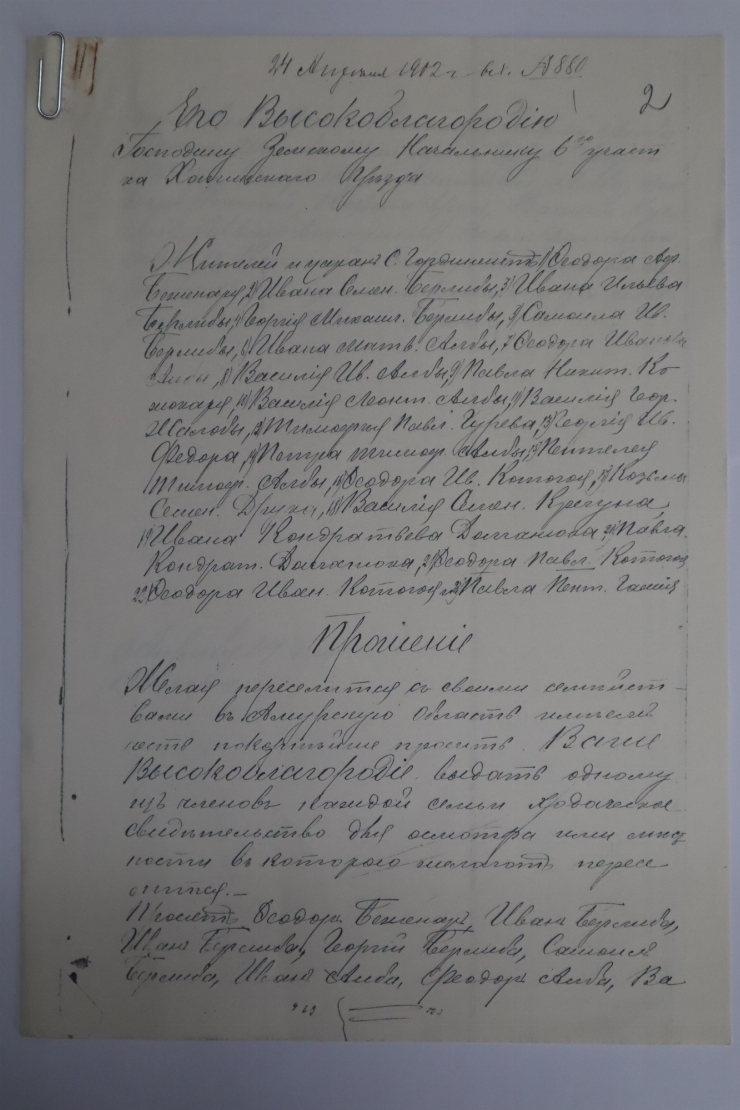 24 Апреля 1902 г. вх. № 880
2
Его Высокоблагородію
Господину Земскому Начальнику 6го участ
ка Хотинскаго Уѣзда
Жителей и царанъ С. Гординештъ 1) Ѳеодора
Беженаря, 2) Ивана Семен. Берливы, 3) Ивана Ильева
Берливы, 4) Георгія Михаил. Берливы, 5) Самоила Ив.
Берливы, 6) Ивана Матв. Албы, 7) Ѳеодора Иванова
Албы, 8) Василія Ив. Албы, 9) Павла Никит. Ко
жокаря, 10) Василія Леонт. Албы, 11) Василія Геор.
12) Тимофея Павл. Гурева, 13) Георгія Ив.
Федора, 14) Петра Тимоф. Албы, 15) Пентелея
Тимоф. Албы, 16) Ѳеодора Ив. Котогоя, 17) Козьмы
Семен. 18) Василія Семен. Крегуна,
19) Ивана Кондратьева 20) Павла
Кондрат. 21) Ѳеодора Павл. Котогоя
22) Ѳеодора Иван. Котогоя и 23) Павла Пент.
Прошеніе
Желая переселится съ своими семѣйст-
вами въ Амурскую область имѣемъ
честь покорнѣйше просить Ваше
Высокоблагородіе выдать одному
изъ членовъ каждой семьи ходаческое
свидѣтельство для осмотра или мѣст
ности въ которую желаютъ пересе
лится.-
Просятъ Ѳеодоръ Беженарь, Иванъ Берлива,
Иванъ Берлива, Георгій Берлива, Самоилъ
Берлива, Иванъ Алба, Ѳеодоръ Алба, Ва